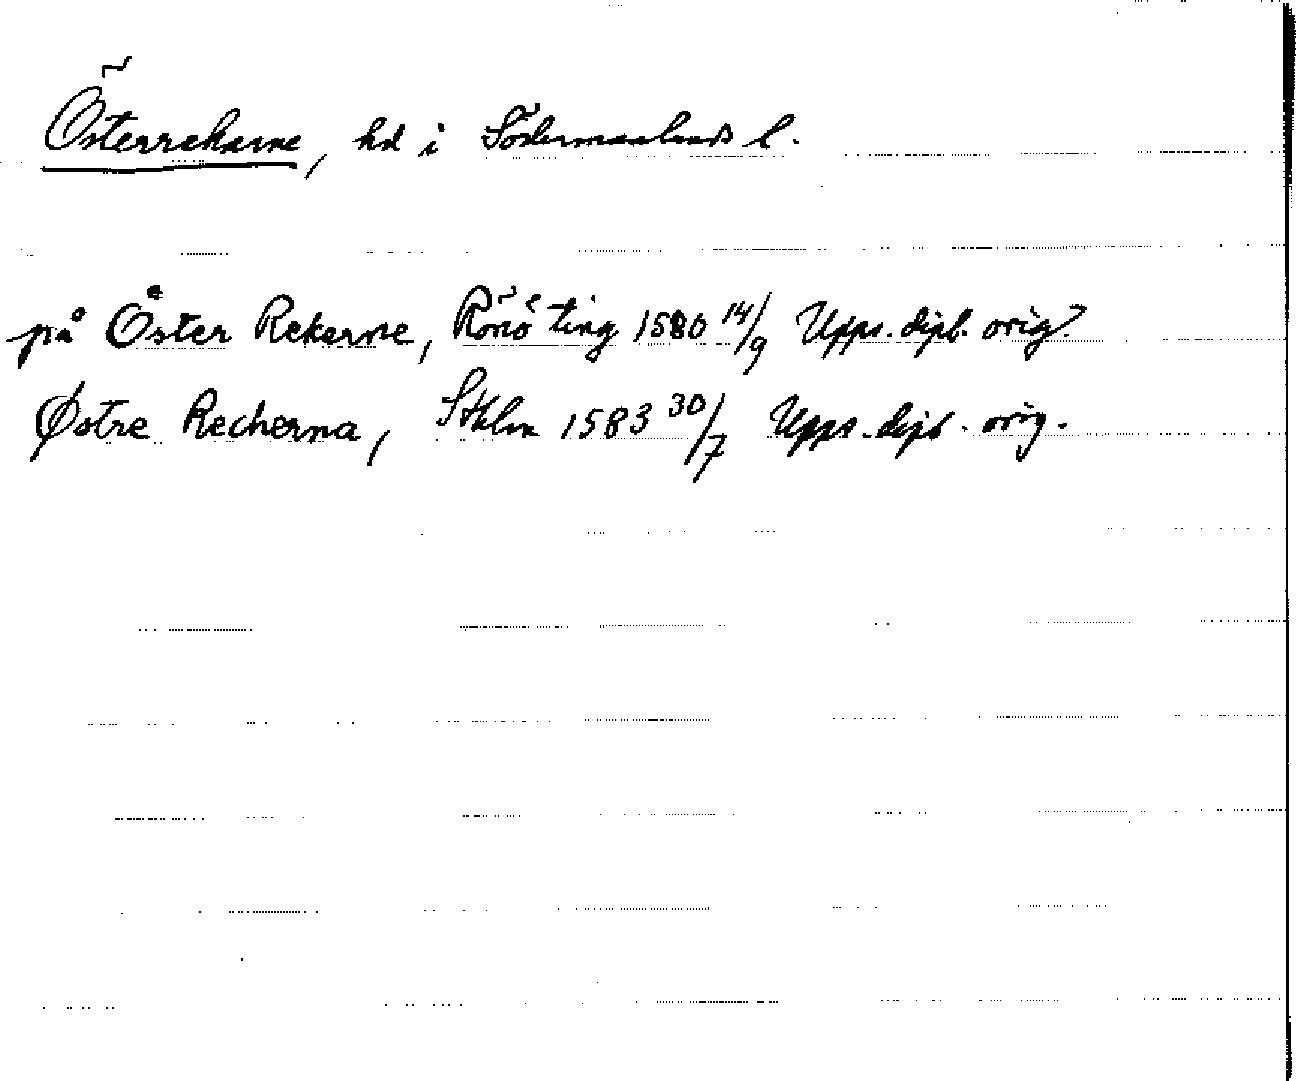 Österrekarne, hd i Södermanlands l.
på Öster Rekerne, Rönö ting 1580 14/9 Upps. dipl. orig.
Østre Recherna, Sthlm 1583 30/7 Upps. dipl. orig.